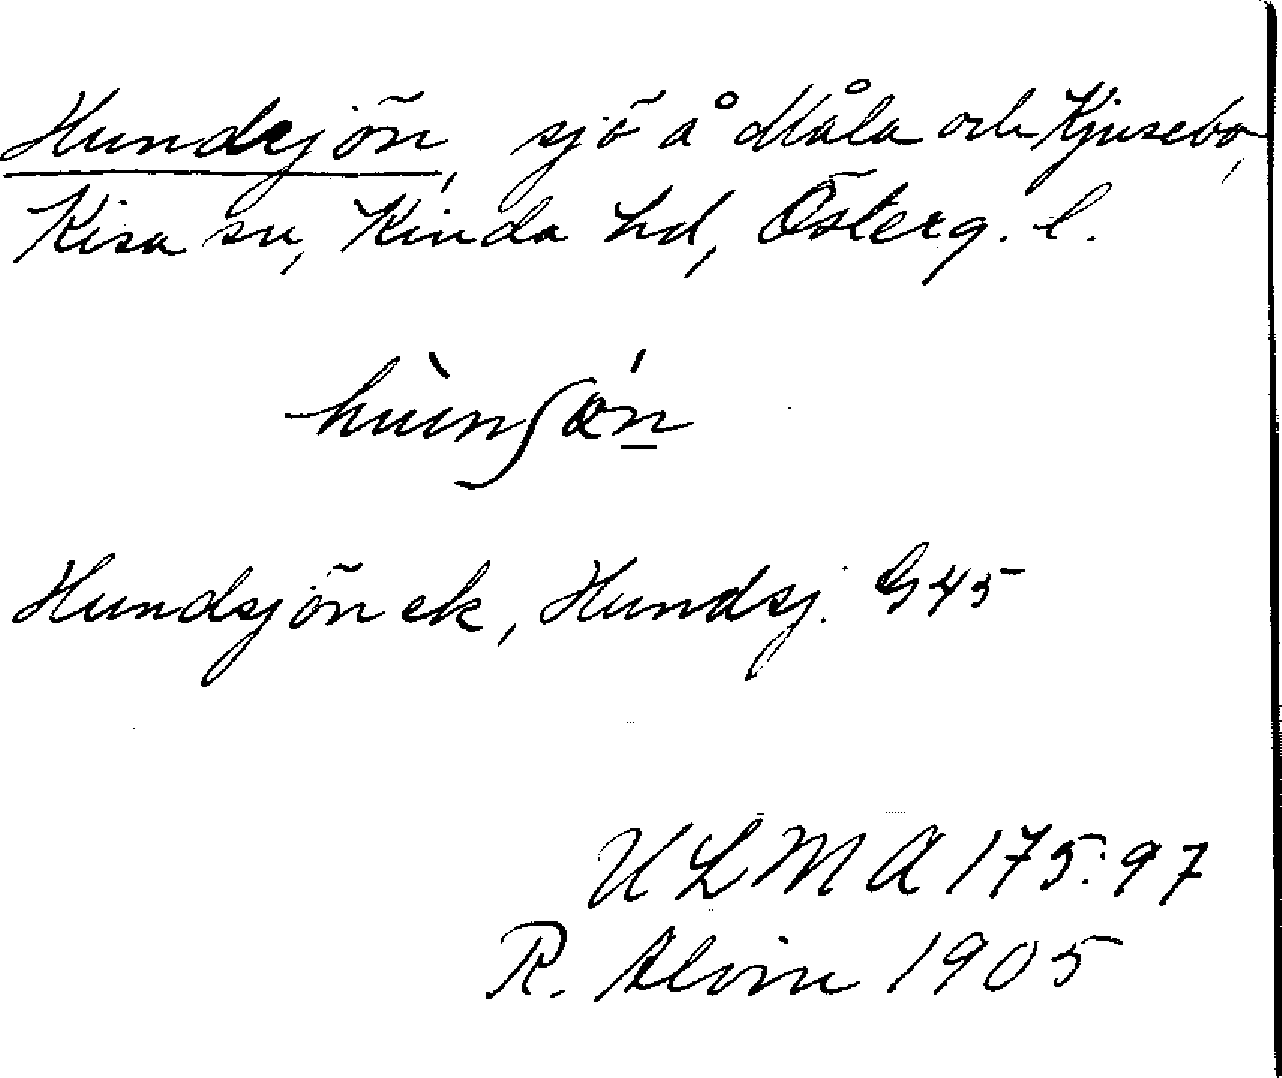 Hundsjön, sjö å Måla och Kjusebo,
Kisa sn, Kinda hd, Österg. l.
Hundsjön ek, Hundsj. G 45
ULMA 175:97
R. Alvin 1905